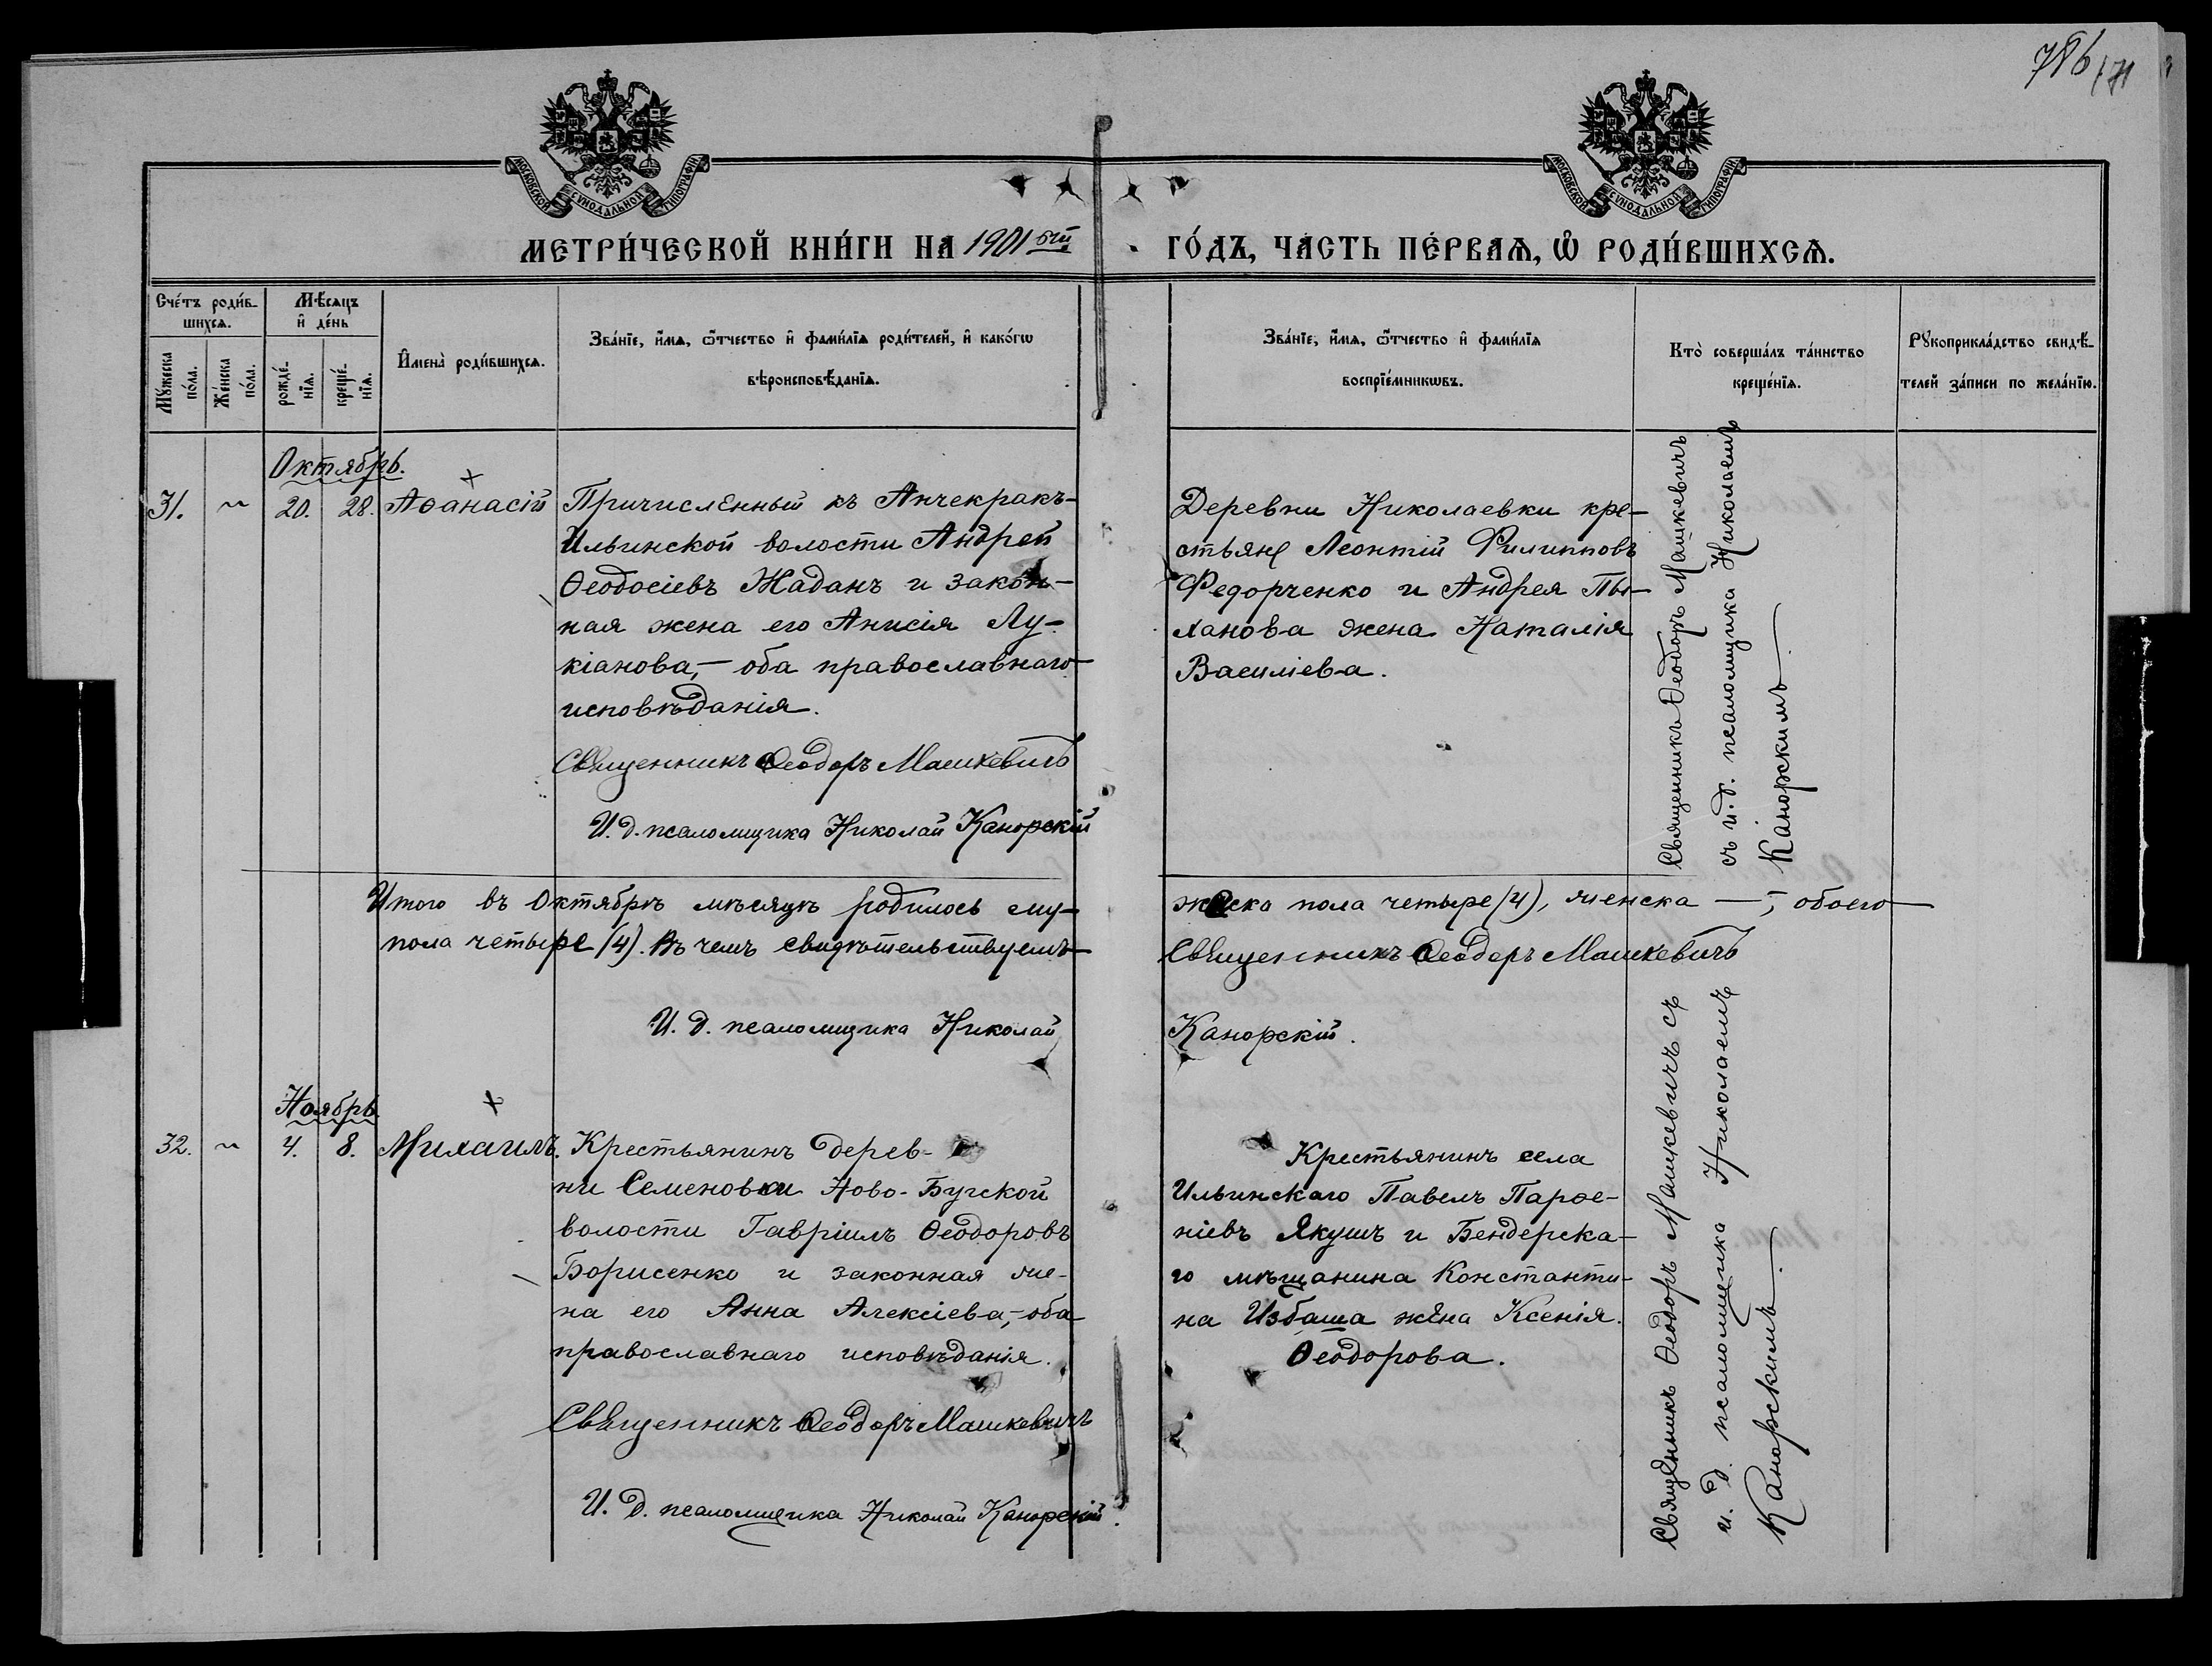 786
171
МОСКОВСКОЙ СУНОДАЛЬНОЙ ТИПОГРАФІИ
МОСКОВСКОЙ СУНОДАЛЬНОЙ ТИПОГРАФІИ
МЕТРИ́ЧЕСКОЙ КНИ́ГИ НА 1901 ый ГО́ДЪ, ЧА́СТЬ ПЕ́РВАѦ, Ѡ҆ РОДИ́ВШИХСѦ.
Сче́тъ роди́в-
шихсѧ.
Мѣ́сѧцъ
и҆ де́нь
Мꙋ́жеска
по́ла.
Же́нска
по́ла.
рожде́-
нїѧ.
креще́-
нїѧ.
И҆мена̀ роди́вшихсѧ.
Зва́нїе, и҆́мѧ, ѻ҆́тчество и҆ фами́лїѧ роди́телей, и҆ како́гѡ
вѣроисповѣ́данїѧ.
Зва́нїе, и҆́мѧ, ѻ҆́тчество и҆ фами́лїѧ
воспрїе́мникѡвъ.
Кто̀ соверша́лъ та́инство
креще́нїѧ.
Рꙋкоприкла́дство свидѣ́-
телей за́писи по жела́нїю.
Октябрь.
31. ~ 20. 28. Аѳанасій
Причисленный къ Анчекракъ-
Ильинской волости Андрей
Ѳеодосіевъ Жаданъ и закон-
ная жена его Анисія Лу-
кіанова, — оба православнаго
исповѣданія.
Священникъ Ѳеодоръ Машкевичъ
И. д. псаломщика Николай Канорскій
Деревни Николаевки кре-
стьяне Леонтій Филипповъ
Федорченко и Андрея Пы-
ханова жена Наталія
Василіева.
Священникъ Ѳеодоръ Машкевичъ
съ и. д. псаломщика Николаемъ
Канорскимъ
Итого въ Октябрѣ мѣсяцѣ родилось му-
жеска пола четыре (4), женска —, обоего
пола четыре (4). Въ чемъ свидѣтельствуемъ
Священникъ Ѳеодоръ Машкевичъ
И. д. псаломщика Николай
Канорскій.
Ноябрь
32. ~ 4. 8. Михаилъ.
Крестьянинъ дерев-
ни Семеновки Ново-Бугской
волости Гавріилъ Ѳеодоровъ
Борисенко и законная же-
на его Анна Алексіева, — оба
православнаго исповѣданія.
Священникъ Ѳеодоръ Машкевичъ
И. д. псаломщика Николай Канорскій.
Крестьянинъ села
Ильинскаго Павелъ Парѳе-
ніевъ Якушъ и Бендерска-
го мѣщанина Константи-
на Избаша жена Ксенія
Ѳеодорова.
Священникъ Ѳеодоръ Машкевичъ съ
и. д. псаломщика Николаемъ
Канорскимъ.